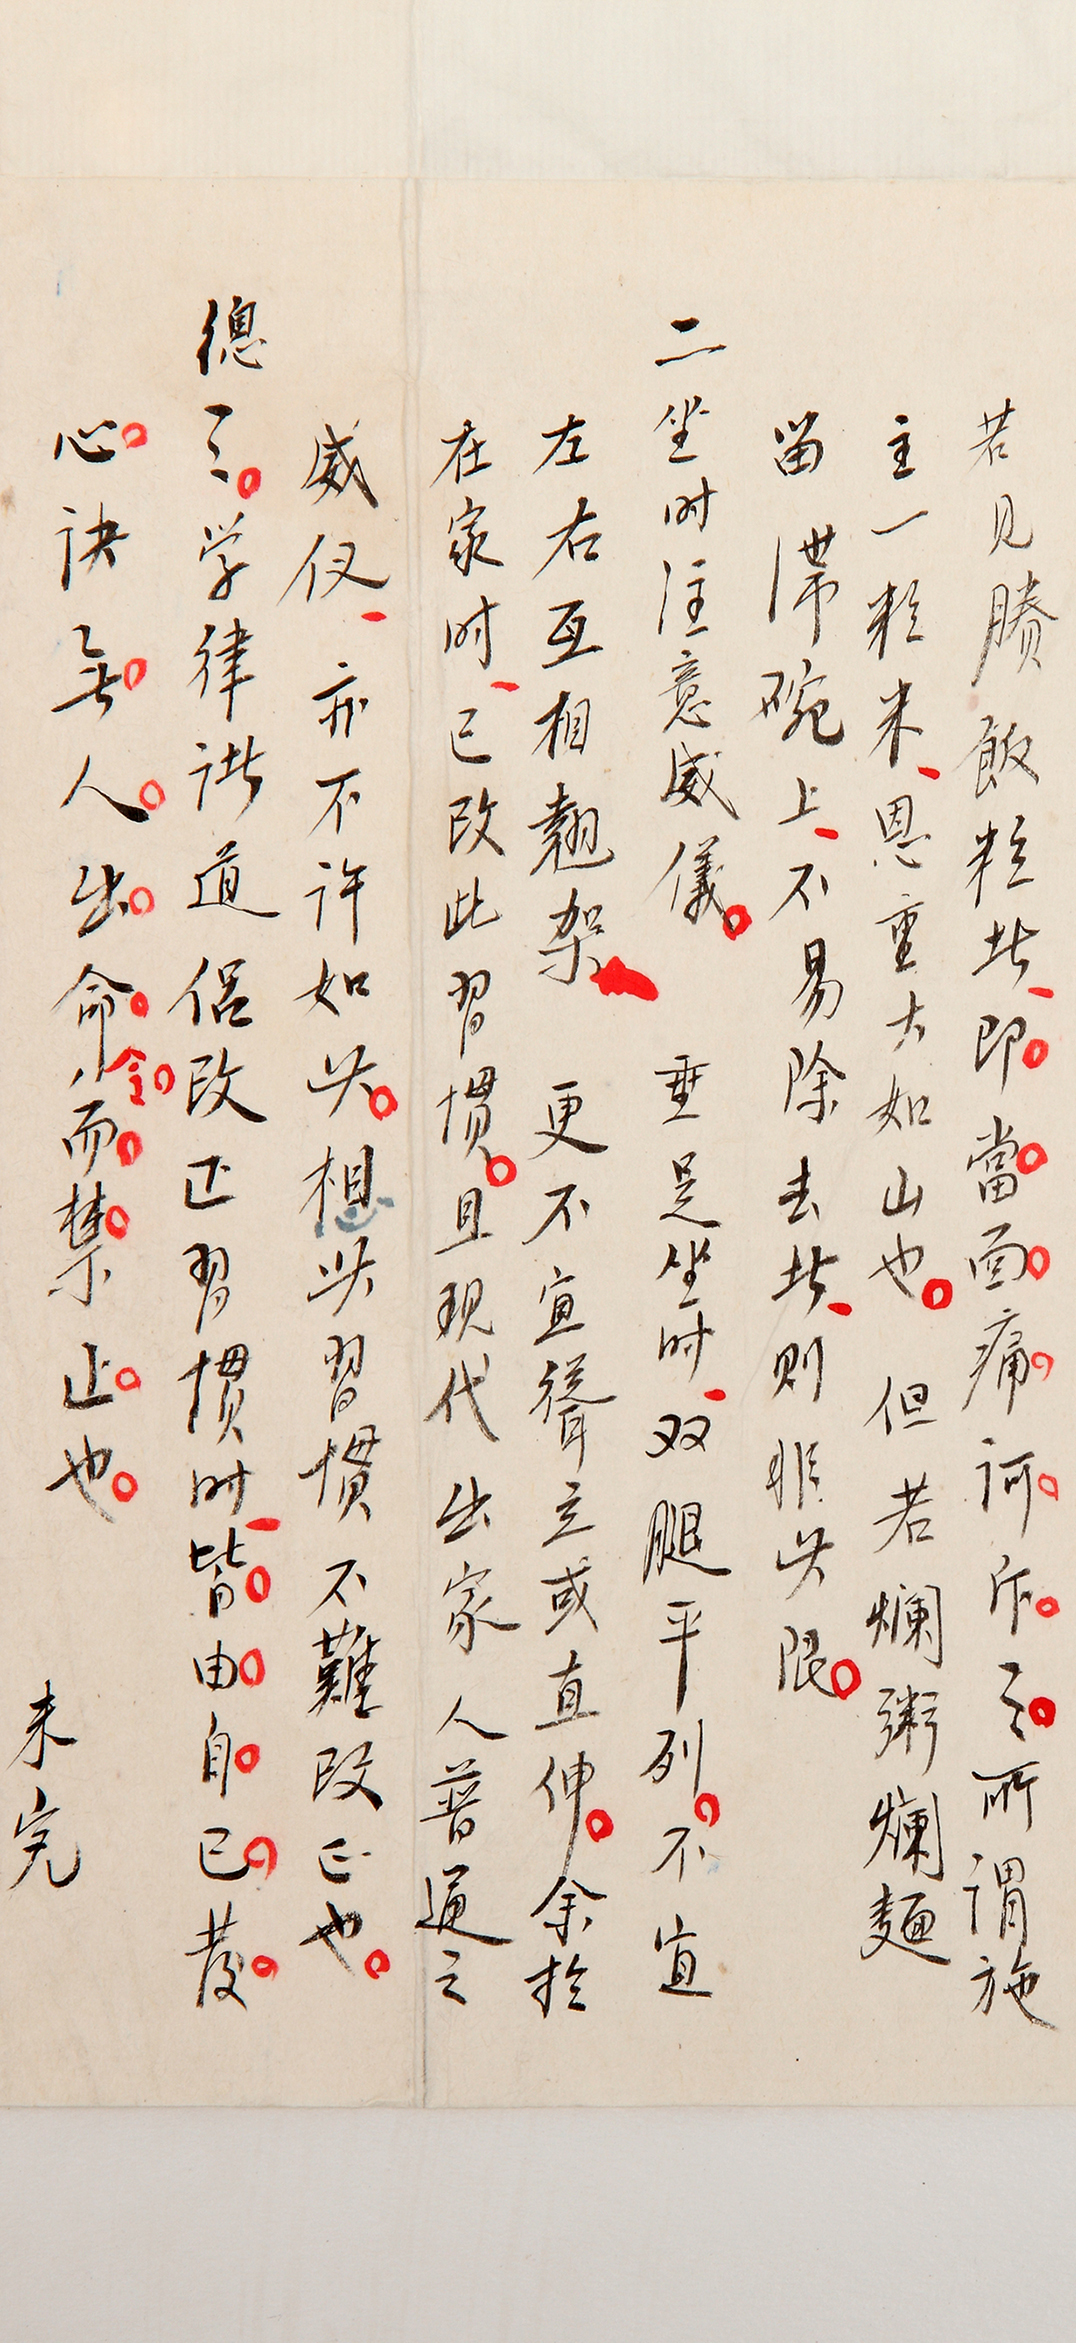 若见賸飯粒者、即當面痛訶斥之。所謂施
主一粒米、恩重大如山也。但若爛粥爛麵
留滞碗上、不易除去者、则非此限。
二坐时注意威儀。垂足坐时、双腿平列。不宜
左右互相翹架、更不宜聳立或直伸。余於
在家时、已改此習慣。且現代出家人普通之
威仪、亦不许如此。想此習慣不難改正也。
總之。学律諸道侣改正習慣时、皆由自己發
心。決無人出命令而禁止也。
未完